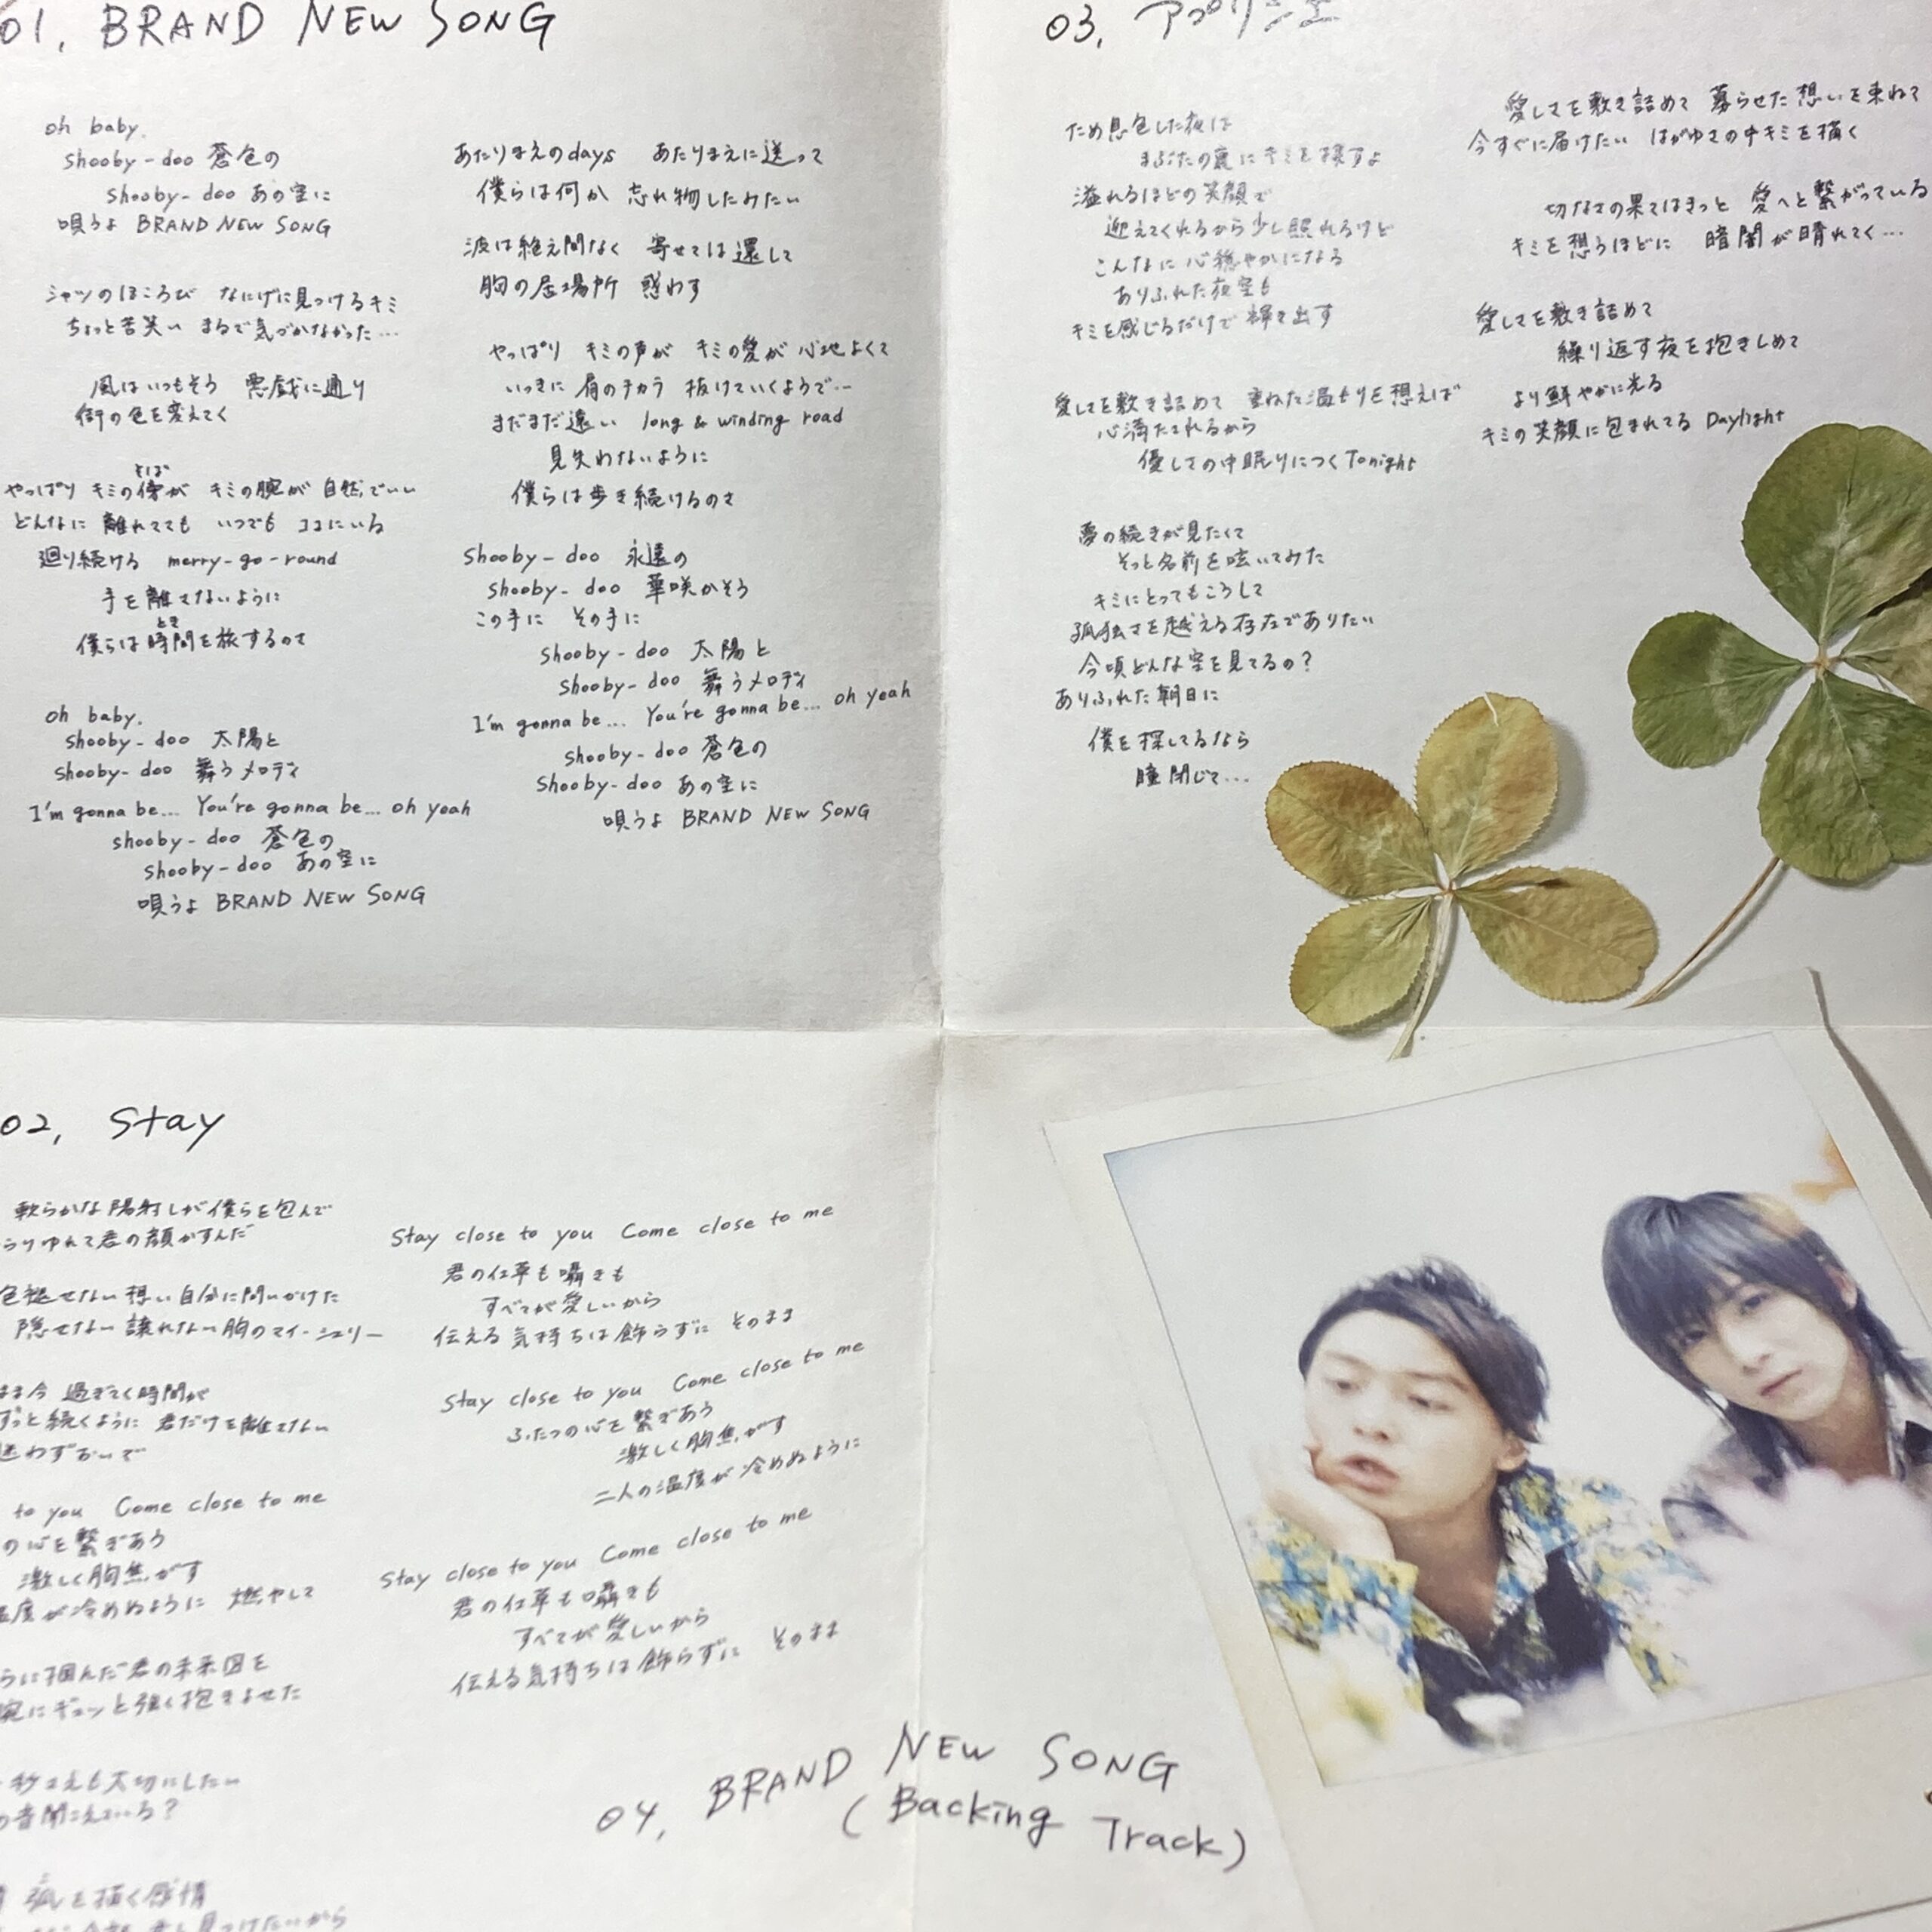 01, BRAND NEW SONG
oh baby.
shooby-doo 蒼色の
shooby-doo あの空に
唄うよ BRAND NEW SONG
シャツのほころび なにげに見つけるキミ
ちょっと苦笑い まるで気づかなかった…
風はいつもそう 悪戯に通り
街の色を変えてく
やっぱり キミの傍が キミの腕が 自然でいい
そば
どんなに 離れてても いつでも ココにいる
廻り続ける merry-go-round
手を離さないように
僕らは時間を旅するのさ
とき
oh baby.
shooby-doo 太陽と
shooby-doo 舞うメロディ
I'm gonna be... You're gonna be... oh yeah
shooby-doo 蒼色の
shooby-doo あの空に
唄うよ BRAND NEW SONG
あたりまえのdays あたりまえに送って
僕らは何か 忘れ物したみたい
波は絶え間なく 寄せては還して
胸の居場所 惑わす
やっぱり キミの声が キミの愛が 心地よくて
いっきに 肩のチカラ 抜けていくようで…
まだまだ遠い long & winding road
見失わないように
僕らは歩き続けるのさ
shooby-doo 永遠の
shooby-doo 華咲かそう
この手に その手に
shooby-doo 太陽と
shooby-doo 舞うメロディ
I'm gonna be... You're gonna be... oh yeah
shooby-doo 蒼色の
shooby-doo あの空に
唄うよ BRAND NEW SONG
02, Stay
軟らかな陽射しが僕らを包んで
らりゆれて君の顔かすんだ
色褪せない想い自分に問いかけた
隠せない譲れない胸のマイ・シェリー
まま今 過ぎてく時間が
ずっと続くように 君だけを離さない
迷わずおいで
to you Come close to me
の心を繋ぎあう
激しく胸焦がす
温度が冷めぬように 燃やして
らに掴んだ君の未来図を
腕にギュッと強く抱きよせた
秒さえも大切にしたい
の音聞こえている?
弧を描く感情
見つけたいから
Stay close to you Come close to me
君の仕草も囁きも
すべてが愛しいから
伝える気持ちは飾らずに そのまま
Stay close to you Come close to me
ふたつの心を繋ぎあう
激しく胸焦がす
二人の温度が冷めぬように
Stay close to you Come close to me
君の仕草も囁きも
すべてが愛しいから
伝える気持ちは飾らずに そのまま
03, アプリシエ
ため息色した夜は
まぶたの裏にキミを探すよ
溢れるほどの笑顔で
迎えてくれるから少し照れるけど
こんなに心穏やかになる
ありふれた夜空も
キミを感じるだけで輝き出す
愛しさを敷き詰めて 重ねた温もりを想えば
心満たされるから
優しさの中眠りにつくTonight
夢の続きが見たくて
そっと名前を呟いてみた
キミにとってもこうして
孤独さを越える存在でありたい
今頃どんな空を見てるの?
ありふれた朝日に
僕を探してるなら
瞳閉じて…
愛しさを敷き詰めて 募らせた想いを束ねて
今すぐに届けたい はがゆさの中キミを描く
切なさの果てはきっと 愛へと繋がっている
キミを想うほどに 暗闇が晴れてく…
愛しさを敷き詰めて
繰り返す夜を抱きしめて
より鮮やかに光る
キミの笑顔に包まれてる Daylight
04, BRAND NEW SONG
(Backing Track)